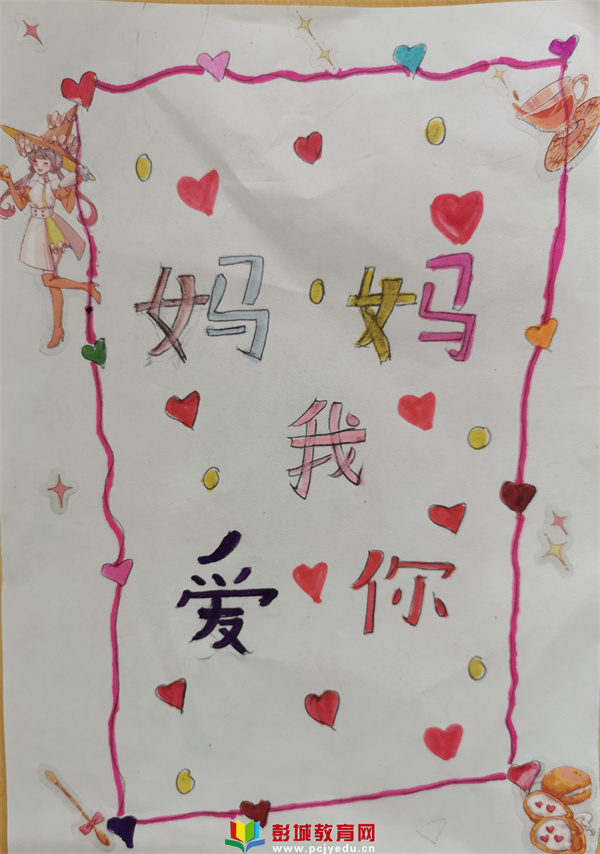 妈妈
我
爱你
彭城教育网
www.pcjyedu.cn